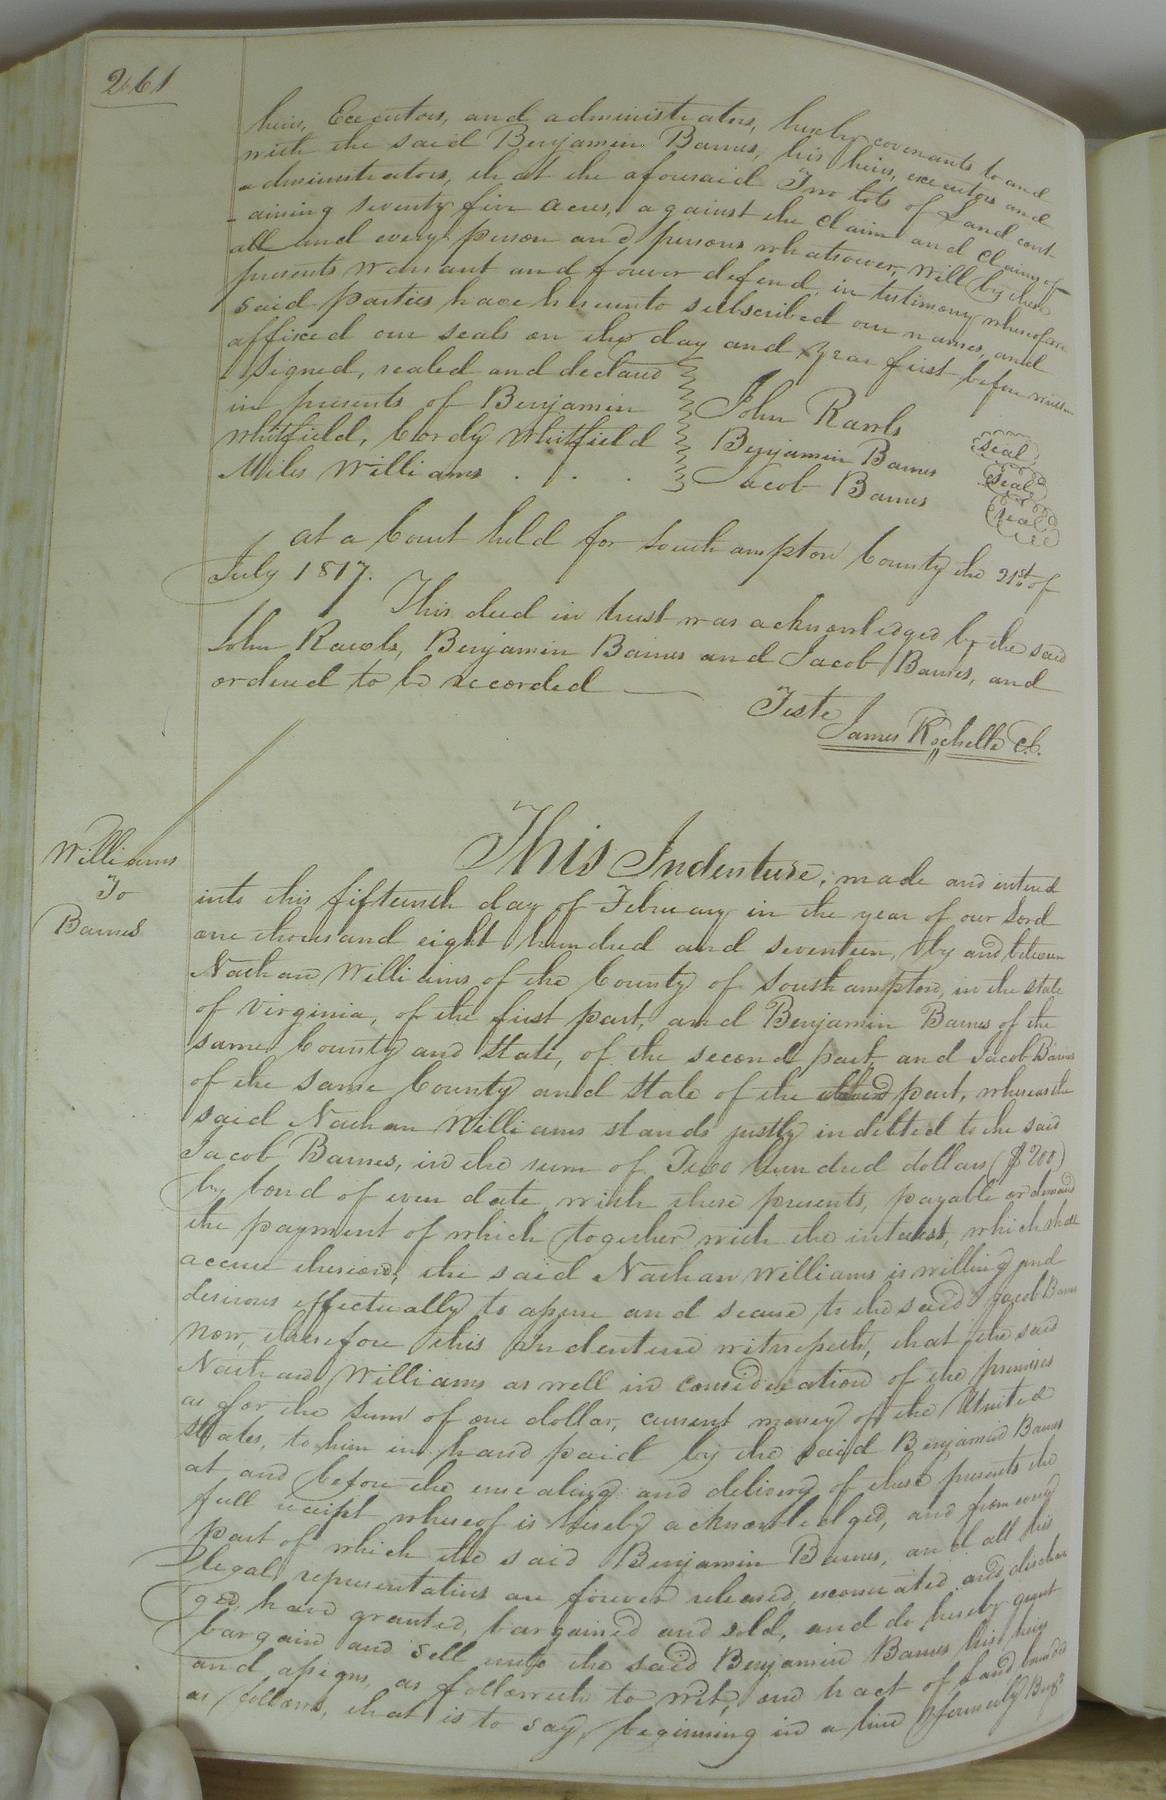 261
heirs, Executors, and administrators, hereby covenants to and
with the said Benjamin Barnes, his heirs, executors and
administrators, that the aforesaid Two lots of Land cont-
-aining seventy five acres, against the claim and claims of
all and every person and persons whatsoever, will by these
presents warrant and forever defend, in testimony whereof are
said parties have hereunto subscribed our names, and
affixed our seals on the day and year first before written
Signed, sealed and declared
in presents of Benjamin
Whitfield, Cordy Whitfield
Miles Williams . . .
John Rawls seal
Benjamin Barnes seal
Jacob Barnes seal
at a Court held for Southampton County the 21st of
July 1817.
This deed in trust was acknowledged by the said
John Rawls, Benjamin Barnes and Jacob Barnes, and
ordered to be recorded —
Teste
James Rochelle C.C.
Williams
To
Barnes
This Indenture, made and entered
into this fifteenth day of February in the year of our Lord
one thousand eight hundred and seventeen, by and between
Nathan Williams of the County of Southampton, in the state
of Virginia, of the first part, and Benjamin Barnes of the
same County and State, of the second part and Jacob Barnes
of the same County and State of the third part, whereas the
said Nathan Williams stands justly indebted to the said
Jacob Barnes, in the sum of Two hundred dollars ($200)
by bond of even date with these presents, payable on demand
the payment of which together with the interest, which shall
accrue thereon, the said Nathan Williams is willing and
desirous effectually to assure and secure to the said Jacob Barnes
Now, therefore this indenture witnesseth, that the said
Nathan Williams as well in consideration of the premises
as for the Sum of one dollar, current money of the United
States, to him in hand paid by the said Benjamin Barnes
at and before the ensealing and delivery of these presents the
full receipt whereof is hereby acknowledged, and from every
part of which the said Benjamin Barnes, and all his
legal representatives are forever released, exonerated and dischar
ged, have granted, bargained and sold, and do hereby grant
bargain and Sell unto the said Benjamin Barnes his heirs
and assigns, as followeth to wit, one tract of Land bounded
as follows, that is to say, beginning in a line formerly